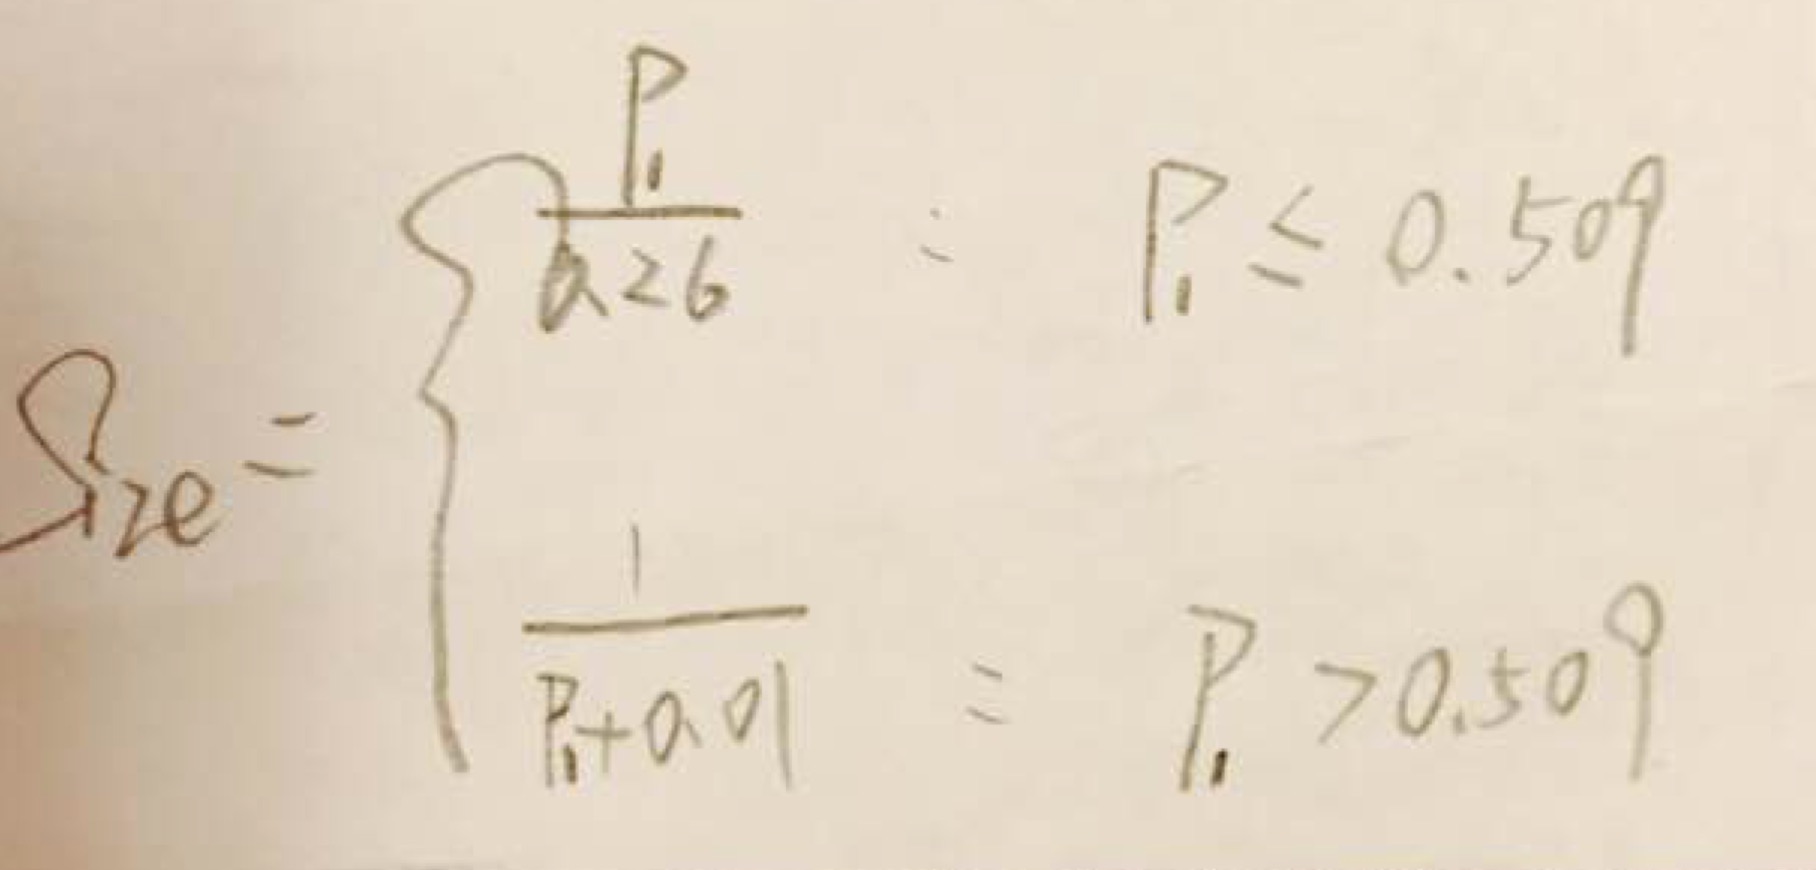 Size = { P₁ / 0.26 : P₁ ≤ 0.509
1 / (P₁ + 0.01) : P₁ > 0.509